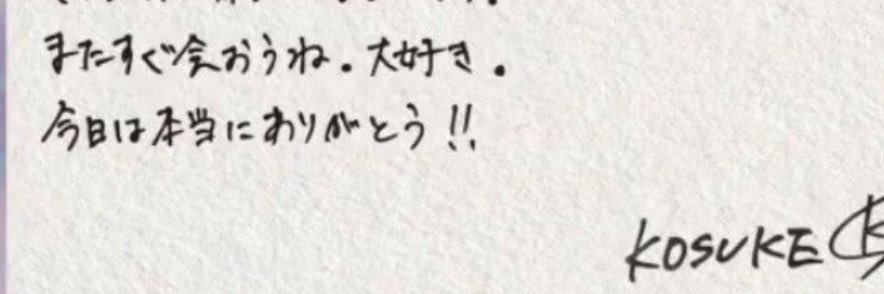 またすぐ会おうね.大好き.
今日は本当にありがとう!!
KOSUKE